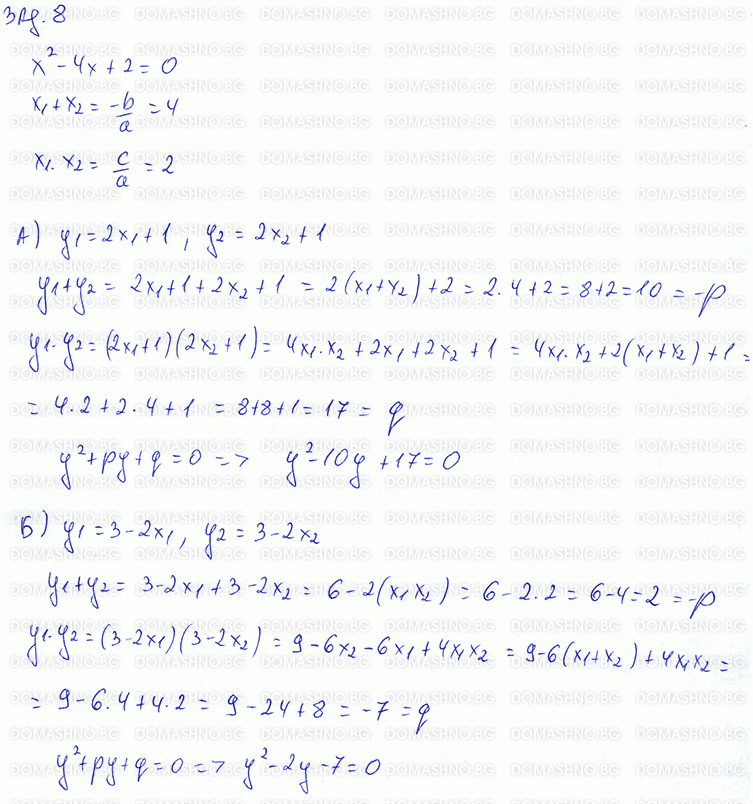 Зад. 8
x² - 4x + 2 = 0
x₁ + x₂ = -b/a = 4
x₁. x₂ = c/a = 2
А) y₁ = 2x₁ + 1 , y₂ = 2x₂ + 1
y₁ + y₂ = 2x₁ + 1 + 2x₂ + 1 = 2(x₁ + x₂) + 2 = 2.4 + 2 = 8 + 2 = 10 = -p
y₁. y₂ = (2x₁ + 1)(2x₂ + 1) = 4x₁. x₂ + 2x₁ + 2x₂ + 1 = 4x₁. x₂ + 2(x₁ + x₂) + 1 =
= 4.2 + 2.4 + 1 = 8 + 8 + 1 = 17 = q
y² + py + q = 0 => y² - 10y + 17 = 0
Б) y₁ = 3 - 2x₁, y₂ = 3 - 2x₂
y₁ + y₂ = 3 - 2x₁ + 3 - 2x₂ = 6 - 2(x₁ x₂) = 6 - 2.2 = 6 - 4 = 2 = -p
y₁. y₂ = (3 - 2x₁)(3 - 2x₂) = 9 - 6x₂ - 6x₁ + 4x₁x₂ = 9 - 6(x₁ + x₂) + 4x₁x₂ =
= 9 - 6.4 + 4.2 = 9 - 24 + 8 = -7 = q
y² + py + q = 0 => y² - 2y - 7 = 0